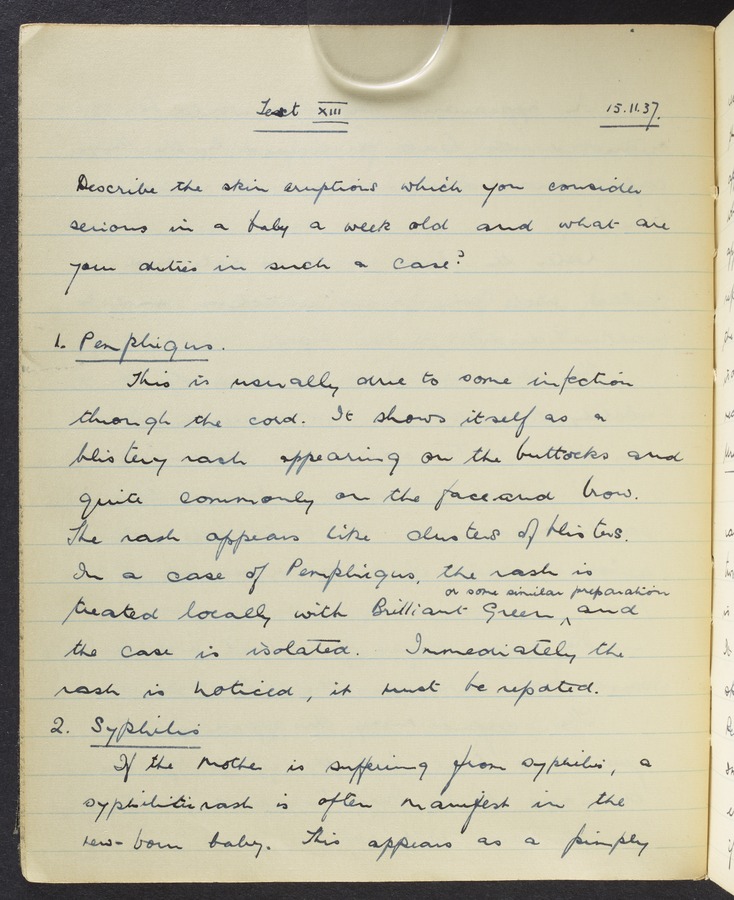 Test XIII 15.11.37.
Describe the skin eruptions which you consider
serious in a baby a week old and what are
your duties in such a case?
1. Pemphigus.
This is usually due to some infection
through the cord. It shows itself as a
blistery rash appearing on the buttocks and
quite commonly on the face and brow.
The rash appears like clusters of blisters.
In a case of Pemphigus, the rash is
or some similar preparation
treated locally with Brilliant Green ^ and
the case is isolated. Immediately the
rash is noticed, it must be reported.
2. Syphilis
If the Mother is suffering from syphilis, a
syphilitic rash is often manifest in the
new-born baby. This appears as a pimply